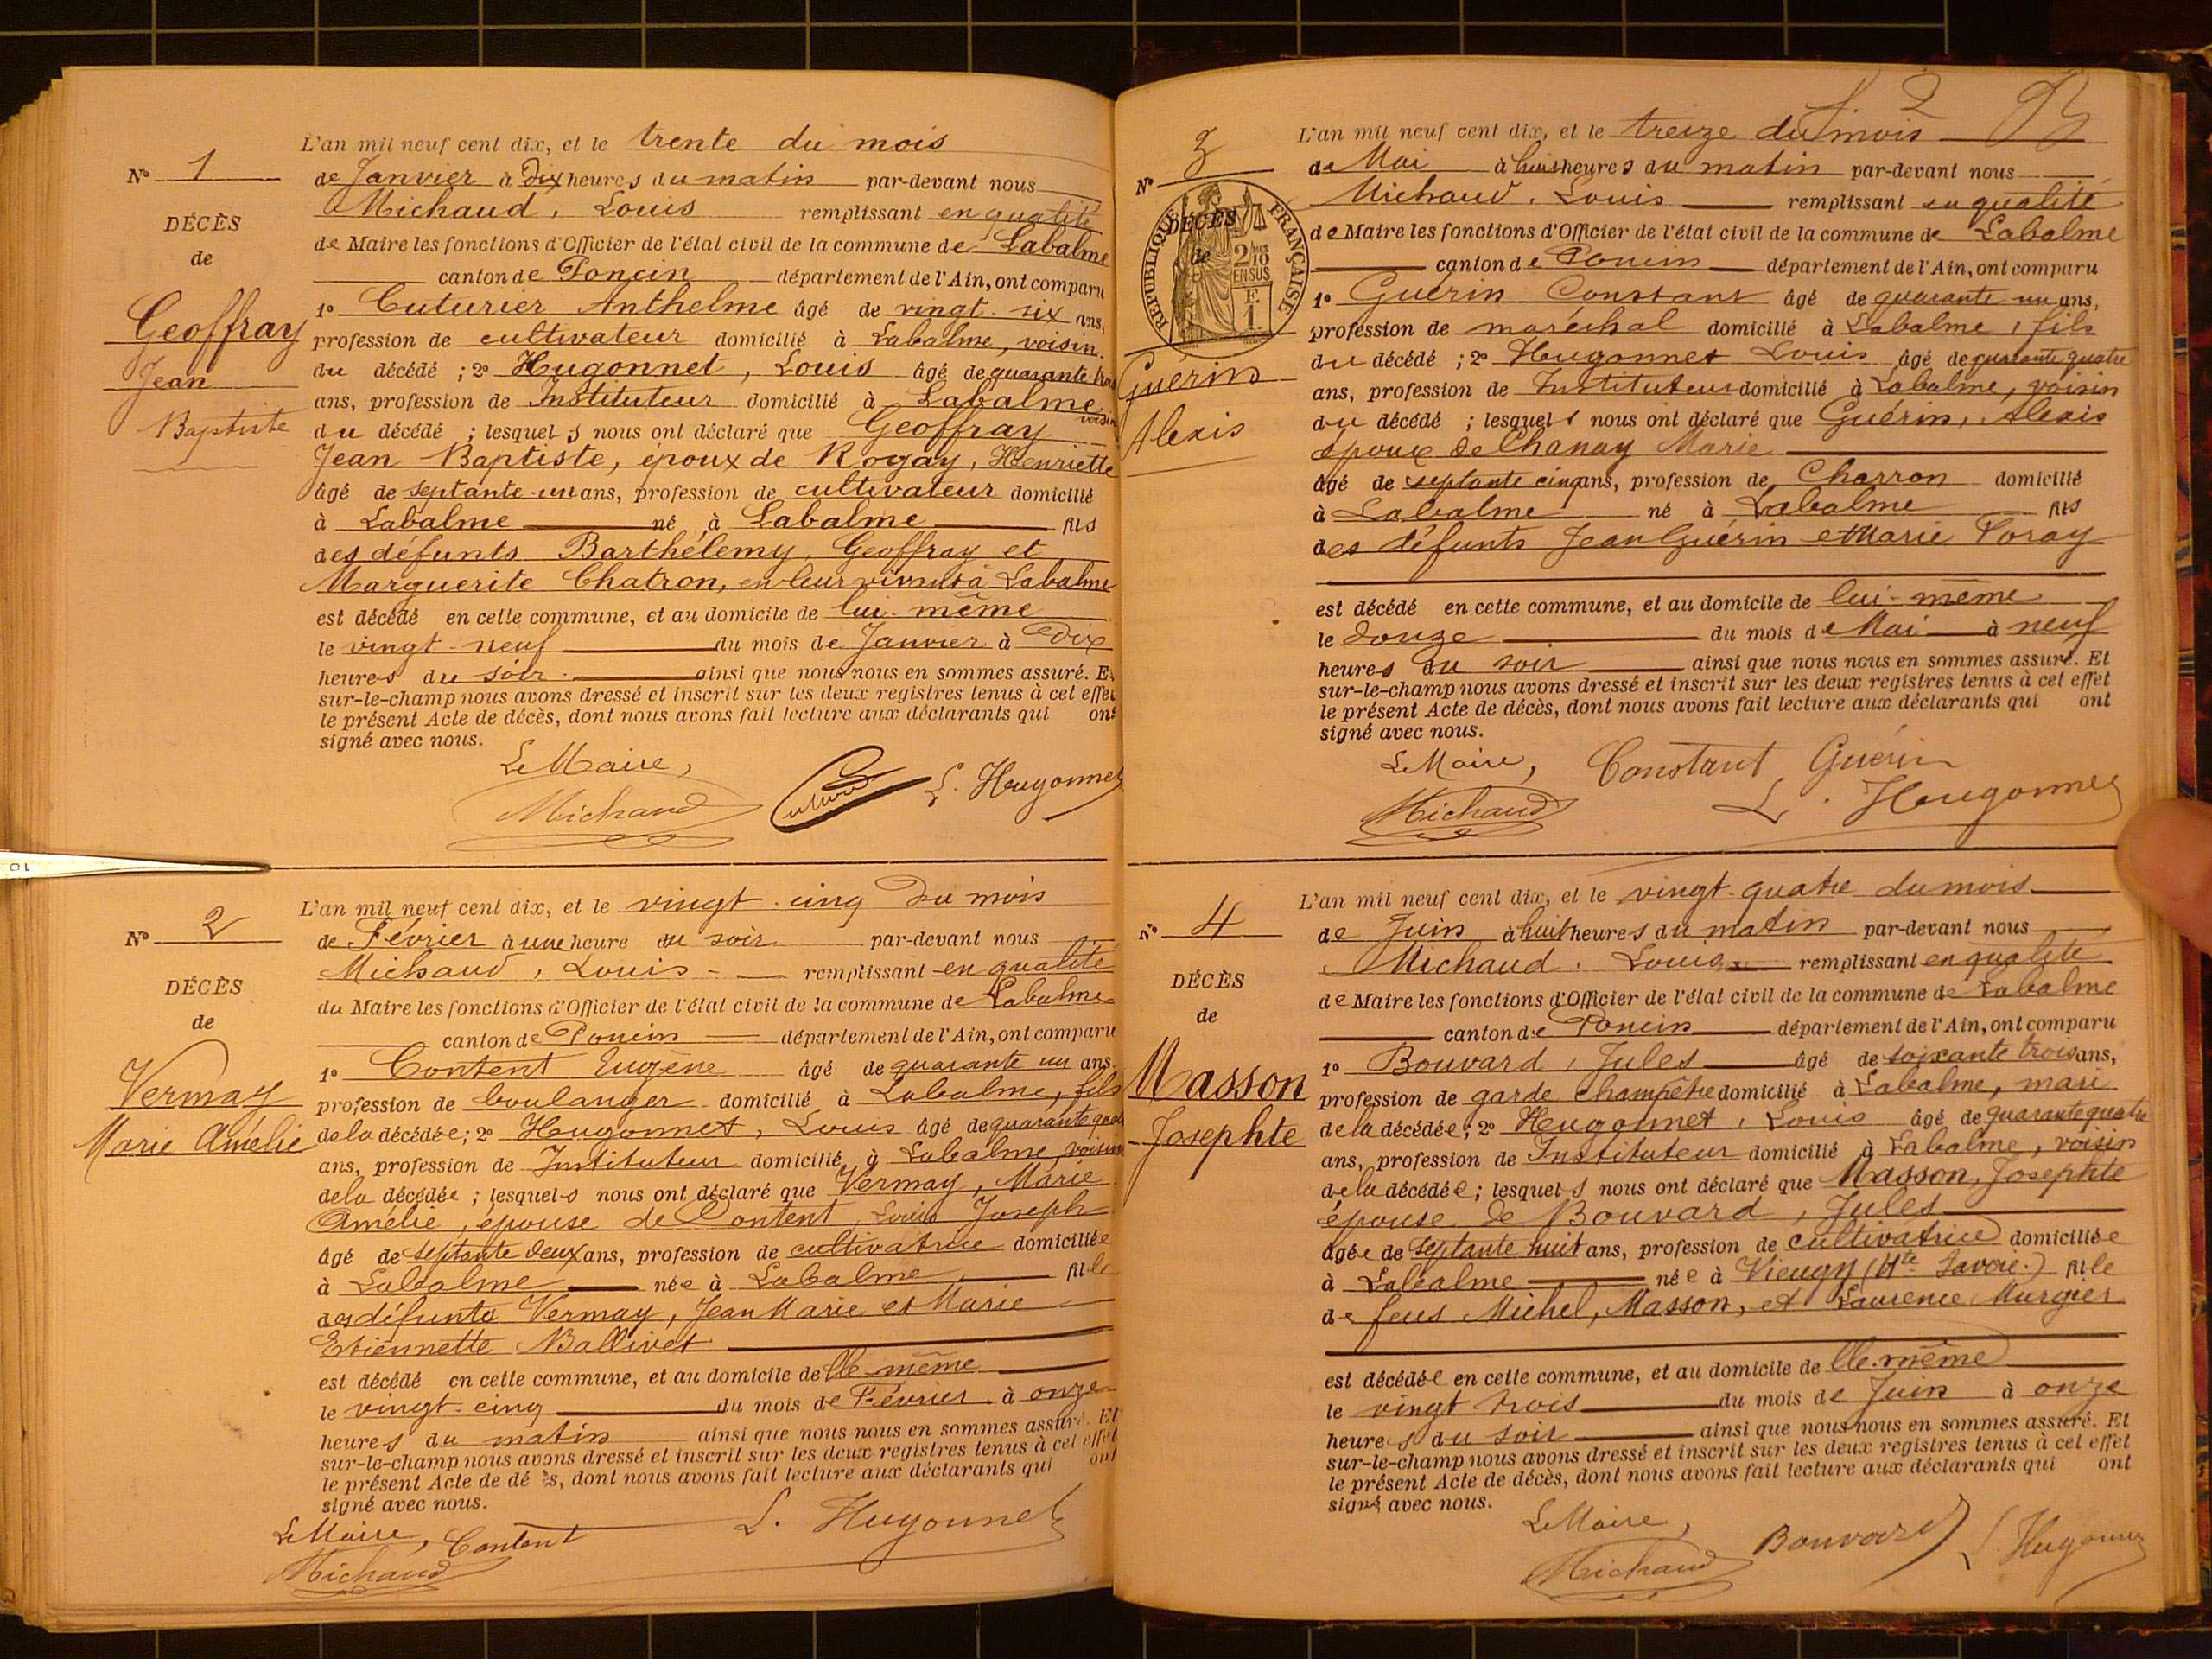 L'an mil neuf cent dix, et le trente du mois
N° 1
de Janvier à Dix heures du matin par-devant nous
Michaud, Louis remplissant en qualité
DÉCÈS
de Maire les fonctions d'Officier de l'état civil de la commune de Labalme
de
canton de Poncin département de l'Ain, ont comparu
1° Cuturier Anthelme âgé de vingt-six ans,
Geoffray
profession de cultivateur domicilié à Labalme, voisin
du décédé ; 2° Hugonnet, Louis âgé de quarante trois
Jean
ans, profession de Instituteur domicilié à Labalme
voisin
Baptiste
du décédé ; lesquels nous ont déclaré que Geoffray
Jean Baptiste, époux de Rogay, Henriette
âgé de septante-un ans, profession de cultivateur domicilié
à Labalme né à Labalme fils
des défunts Barthélemy, Geoffray et
Marguerite Chatron, en leur vivant à Labalme
est décédé en cette commune, et au domicile de lui-même
le vingt-neuf du mois de Janvier à Dix
heures du soir ainsi que nous nous en sommes assuré. Et
sur-le-champ nous avons dressé et inscrit sur les deux registres tenus à cet effet
le présent Acte de décès, dont nous avons fait lecture aux déclarants qui ont
signé avec nous.
Le Maire,
Michaud L. Hugonnet
L'an mil neuf cent dix, et le vingt-cinq du mois
N° 2
de Février à une heure du soir par-devant nous
Michaud, Louis remplissant en qualité
DÉCÈS
du Maire les fonctions d'Officier de l'état civil de la commune de Labalme
de
canton de Poncin département de l'Ain, ont comparu
1° Content Eugène âgé de quarante un ans
Vermay
profession de boulanger domicilié à Labalme, fils
Marie Amélie
de la décédée ; 2° Hugonnet, Louis âgé de quarante quatre
ans, profession de Instituteur domicilié à Labalme, voisin
de la décédée ; lesquels nous ont déclaré que Vermay, Marie
Amélie, épouse de Content, Louis Joseph
âgé de septante deux ans, profession de cultivatrice domiciliée
à Labalme née à Labalme fille
des défunts Vermay, Jean Marie et Marie
Etiennette Ballivet
est décédé en cette commune, et au domicile de lle même
le vingt-cinq du mois de Février à onze
heures du matin ainsi que nous nous en sommes assuré. Et
sur-le-champ nous avons dressé et inscrit sur les deux registres tenus à cet effet
le présent Acte de dé ès, dont nous avons fait lecture aux déclarants qui ont
signé avec nous.
Le Maire, Content L. Hugonnet
Michaud
2
L'an mil neuf cent dix, et le treize du mois
N° 3
de Mai à huit heures du matin par-devant nous
Michaud, Louis remplissant en qualité
DÉCÈS
RÉPUBLIQUE FRANÇAISE
2/10 EN SUS
F. 1
de Maire les fonctions d'Officier de l'état civil de la commune de Labalme
de
canton de Poncin département de l'Ain, ont comparu
1° Guérin Constant âgé de quarante un ans,
profession de maréchal domicilié à Labalme, fils
du décédé ; 2° Hugonnet Louis âgé de quarante quatre
Guérin
ans, profession de Instituteur domicilié à Labalme, voisin
Alexis
du décédé ; lesquels nous ont déclaré que Guérin, Alexis
époux de Chanay Marie
âgé de septante cinq ans, profession de Charron domicilié
à Labalme né à Labalme fils
des défunts Jean Guérin et Marie Poray
est décédé en cette commune, et au domicile de lui-même
le douze du mois de Mai à neuf
heures du soir ainsi que nous nous en sommes assuré. Et
sur-le-champ nous avons dressé et inscrit sur les deux registres tenus à cet effet
le présent Acte de décès, dont nous avons fait lecture aux déclarants qui ont
signé avec nous.
Le Maire, Constant Guérin
Michaud L. Hugonnet
L'an mil neuf cent dix, et le vingt-quatre du mois
N° 4
de Juin à huit heures du matin par-devant nous
Michaud, Louis remplissant en qualité
DÉCÈS
de Maire les fonctions d'Officier de l'état civil de la commune de Labalme
de
canton de Poncin département de l'Ain, ont comparu
1° Bouvard, Jules âgé de soixante trois ans,
Masson
profession de garde champêtre domicilié à Labalme, mari
Josephte
de la décédée ; 2° Hugonnet, Louis âgé de quarante quatre
ans, profession de Instituteur domicilié à Labalme, voisin
de la décédée ; lesquels nous ont déclaré que Masson, Josephte
épouse de Bouvard, Jules
âgée de septante huit ans, profession de cultivatrice domiciliée
à Labalme née à Vieugy (Hte Savoie) fille
de feus Michel, Masson, et Laurence Murgier
est décédée en cette commune, et au domicile de lle-même
le vingt trois du mois de Juin à onze
heures du soir ainsi que nous nous en sommes assuré. Et
sur-le-champ nous avons dressé et inscrit sur les deux registres tenus à cet effet
le présent Acte de décès, dont nous avons fait lecture aux déclarants qui ont
signé avec nous.
Le Maire,
Michaud Bouvard L. Hugonnet